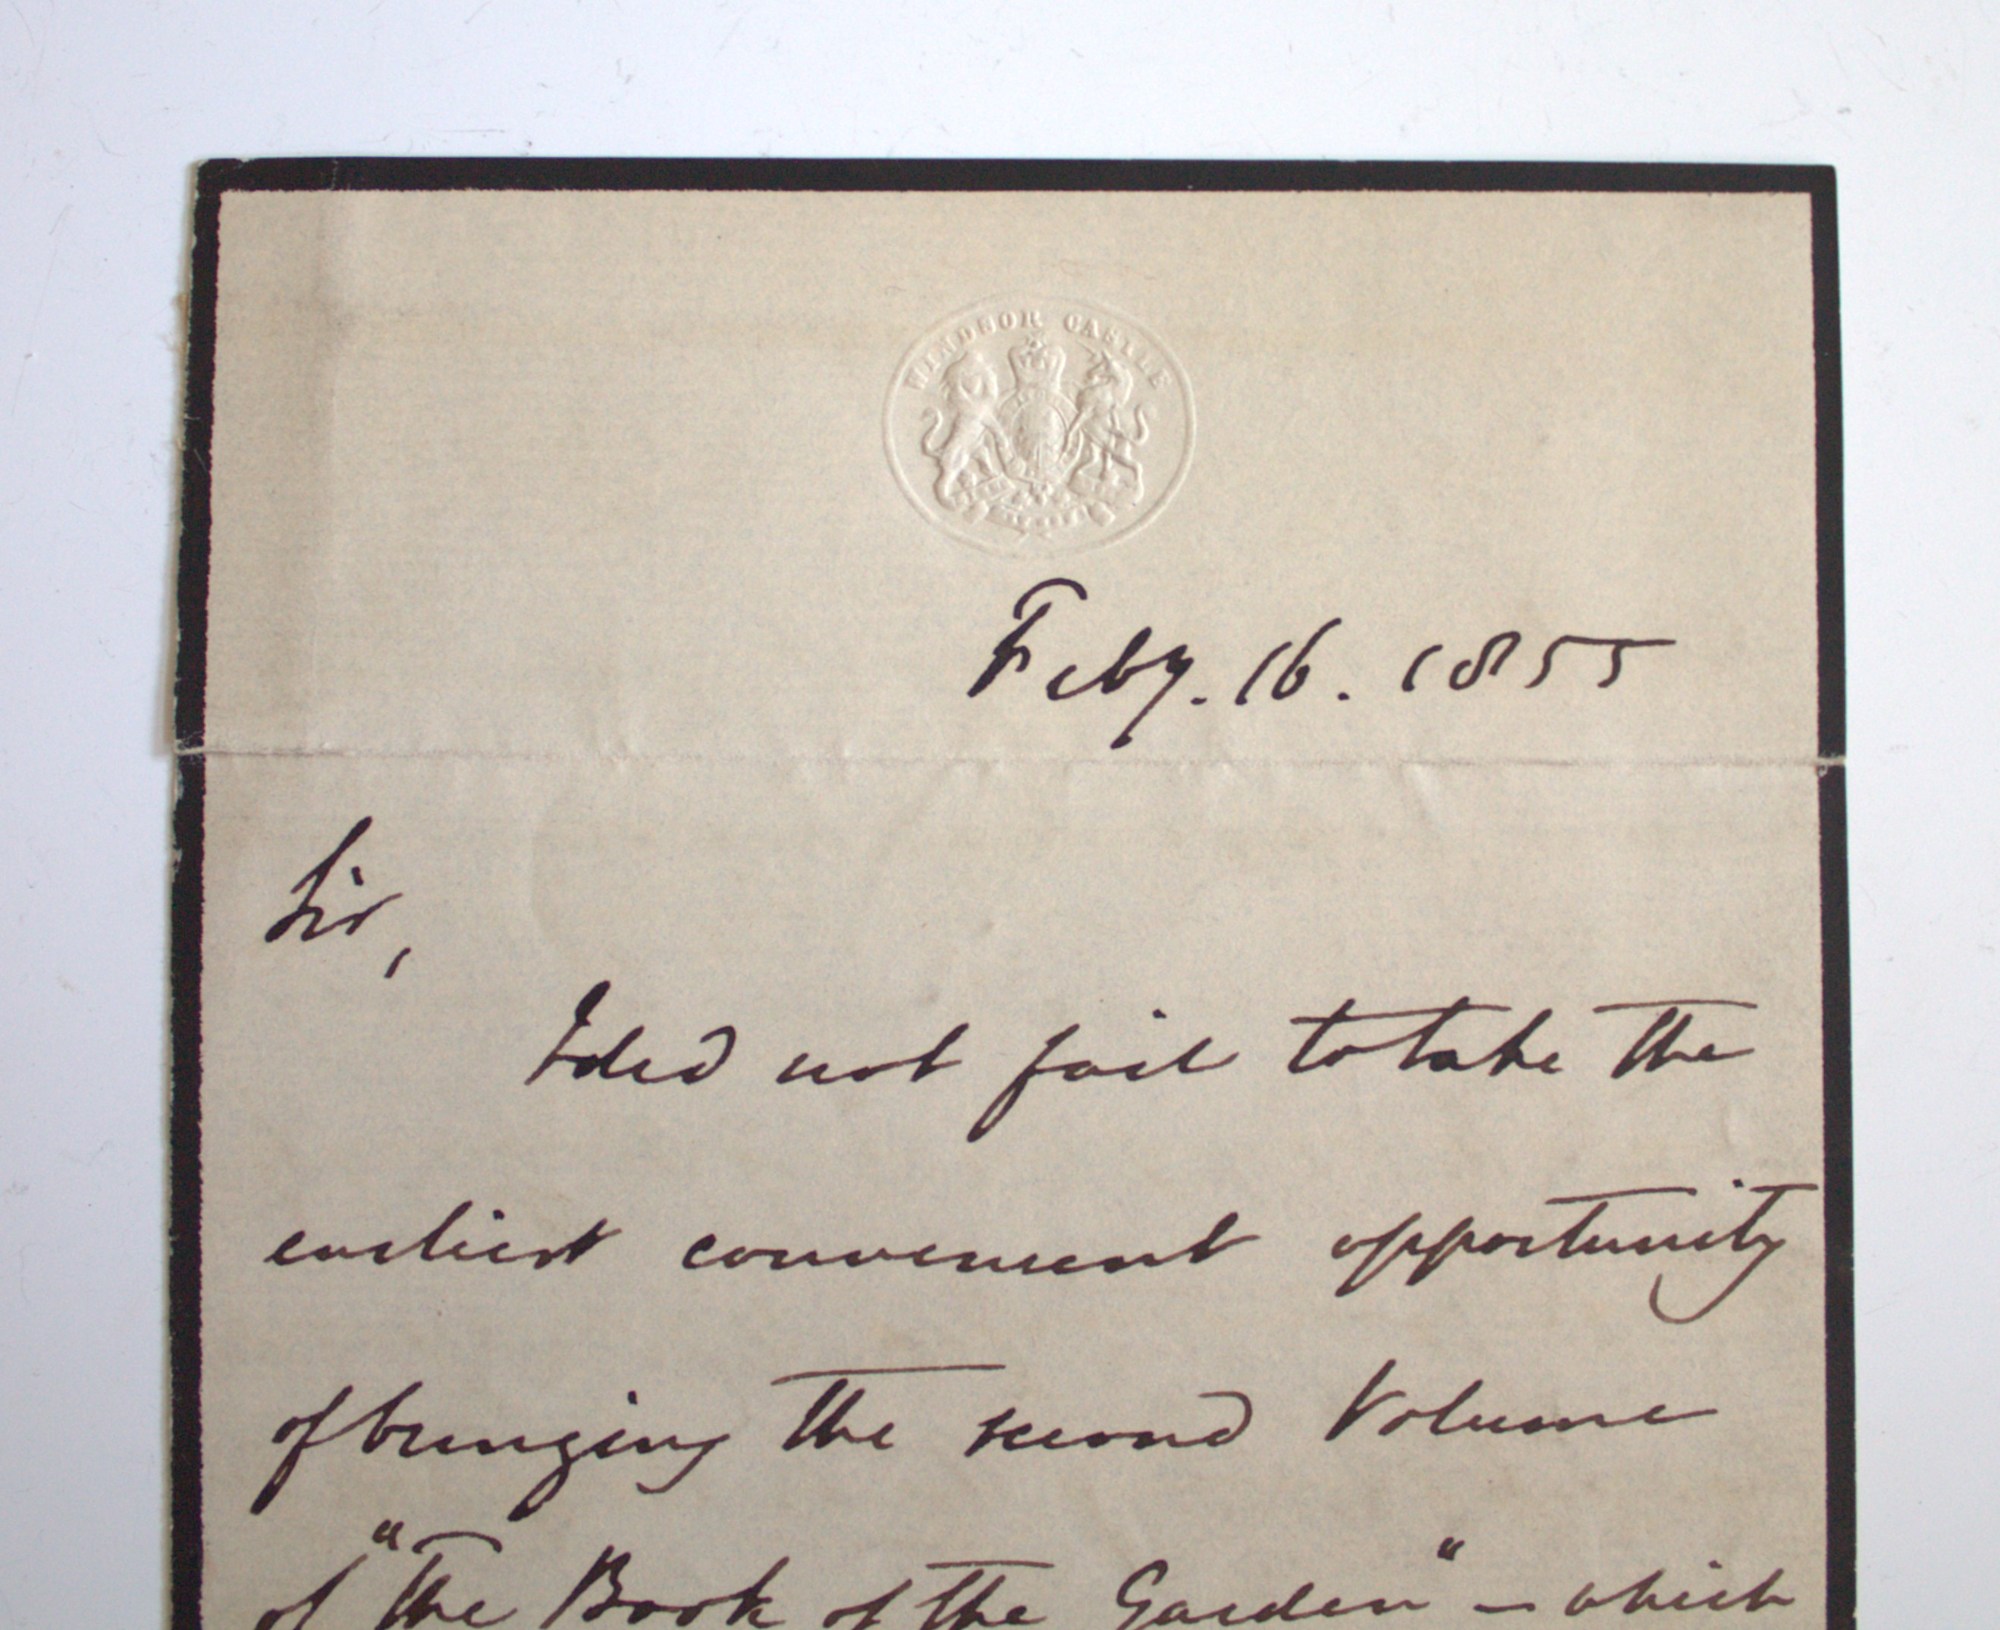 WINDSOR CASTLE
Feby. 16. 1855
Sir,
I did not fail to take the
earliest convenient opportunity
of bringing the second Volume
of "The Book of the Garden" – which